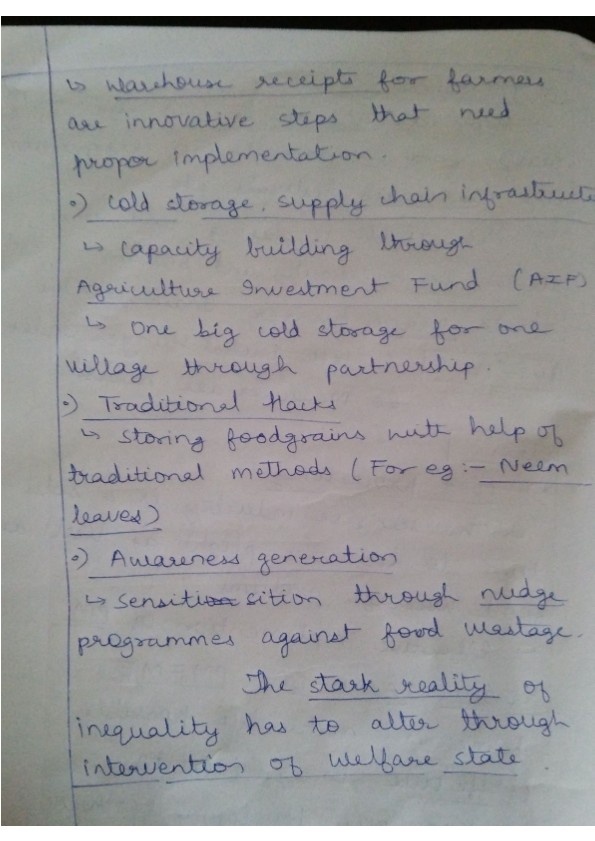 ↳ Warehouse receipts for farmers
are innovative steps that need
proper implementation.
•) Cold storage, supply chain infrastructu
↳ Capacity building through
Agriculture Investment Fund (AIF)
↳ One big cold storage for one
village through partnership.
•) Traditional Hacks
↳ Storing foodgrains with help of
traditional methods (For eg:- Neem
leaves)
•) Awareness generation
↳ Sensitisition through nudge
programmes against food wastage.
The stark reality of
inequality has to alter through
intervention of welfare state.